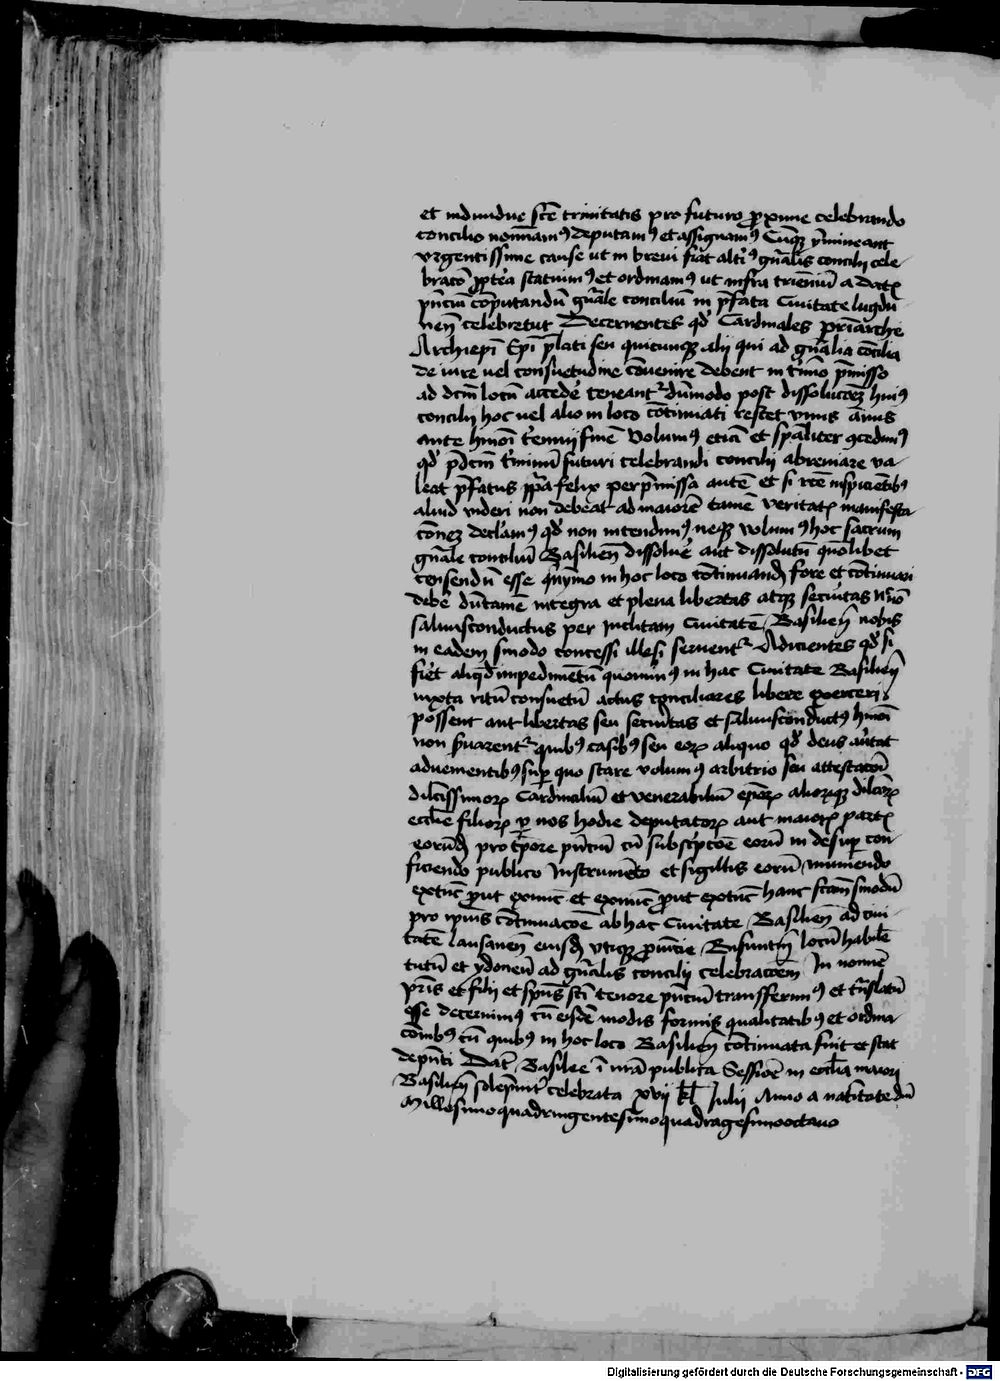 et indiuidue sctē trinitatis pro futuro ꝓxime celebrando
concilio nominamꝰ deputamꝰ et assignamꝰ Cūqꝫ īmineant
vrgentissime cause ut in breui fiat altiꝰ gn̄alis concilij cele-
bracō ꝓpt̉ea statuimꝰ et ordinamꝰ ut infra trienniū a Datꝝ
pn̄ciū cōputandū gn̄ale conciliū in p̄fata Ciuitate lugdu-
nen̄ celebretur Decernentes qd̉ Cardinales pr̄iarche
Archiepī Epī p̄lati seu quicunqꝫ alij qui ad gn̄alia cōcilia
de iure uel consuetudine cōuenire debent in t̉mīo p̄misso
ad dc̄m locū acceder̉ teneant̉ dūmodo post dissolucōeꝫ huiꝰ
concilij hoc uel alio in loco cōtinuati restet vnus ānus
ante hmōi t̉ennij finē Volumꝰ etiā et sp̄aliter ꝯcedimꝰ
qd̉ p̄dcm̄ t̉minū futuri celebrandi concilij abreuiare va-
leat p̄fatus pp̄a felix per p̄missa autē et si rc̄te inspicientibꝰ
aliud videri non debeat ad maiorē tamē veritatꝭ manifesta-
cōneꝫ declaramꝰ qd̉ non intendimꝰ neqꝫ volumꝰ hoc sacrum
gn̄ale conciliū Basilien̄ dissoluer̉ aut dissolutū quōlibet
censendū esse quȳmo in hoc loco cōtinuand̄ fore et cōtinuari
deber̉ dūtamē integra et plena libertas atqꝫ securitas n̄cnō
saluusconductus per inclitam Ciuitatē Basilien̄ nobis
in eadem sinodo concessi illesi seruent̉ Adicientes qd̉ si
fier̉t aliqd̄ impedimētū quominꝰ in hac Ciuitate Basilien̄
iuxta ritū consuetū actus conciliares libere exerceri
possent aut libertas seu securitas et saluusconductꝰ hmōi
non s̉uarent̉ quibꝰ casibꝰ seu eorꝝ aliquo qd̉ deus aủtat
aduenientibꝰ sup̱ quo stare volumꝰ arbitrio seu attestacōī
dilc̄issimorꝝ Cardinaliū et venerabiliū ep̄orꝝ aliorūqꝫ dilc̄orꝝ
eccl̄ie filiorꝝ ꝑ nos hodie deputatorꝝ aut maiorꝭ partꝭ
eorūd̄ pro t̄pore pn̄ciū cū subscripcōe eorū in desup̱ con-
ficiendo publico Instrumēto et sigillis eorū muniendo
extūc ꝓut exnunc et exnunc ꝓut extūc hanc sc̄am sinodū
pro ip̄ius cōtinuacōe ab hac Ciuitate Basilien̄ ad ciui-
tatē lausanen̄ eiusd̄ vtiqꝫ ꝓuincie Bisuntin̄ locū habilē
tutū et ydoneū ad gn̄alis concilij celebracōem In nomīe
pr̄is et filij et sp̄us scī tenore pn̄ciū transferimꝰ et tn̄slatū
esse decernimꝰ cū eisdē modis formis qualitatibꝰ et ordina-
cōnibꝰ cū quibꝰ in hoc loco Basilien̄ cōtinuata fuit et stat
depn̄ti Dat̄ Basilee ī nr̄a publica Sessiōe in eccl̄ia maiori
Basilien̄ solēpnit̉ celebrata xvij kl̄ Julij Anno a natiuitate dn̄i
Millesimoquadringentesimoquadragesimooctauo
Digitalisierung gefördert durch die Deutsche Forschungsgemeinschaft - DFG